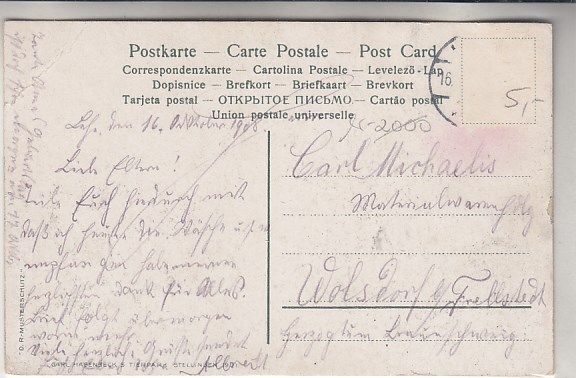 Postkarte — Carte Postale — Post Card
Correspondenzkarte — Cartolina Postale — Levelező-Lap
Dopisnice — Brefkort — Briefkaart — Brevkort
Tarjeta postal — ОТКРЫТОЕ ПИСЬМО — Cartão postal
Union postale universelle
16.
5,-
2000
Lehe, den 16. Oktober 1908
Liebe Eltern!
Teile Euch hierdurch mit
daß ich heute die Wäsche u.s.w
empfangen habe
herzlichsten Dank für Alles.
Brief folgt übermorgen
Viele herzliche Grüße sendet
Carl Michaelis
Materialwarenhdlg
Wolsdorf b/ Frellstedt
Herzogtum Braunschweig
"D.R.-MUSTERSCHUTZ"
CARL HAGENBECK'S TIERPARK STELLINGEN